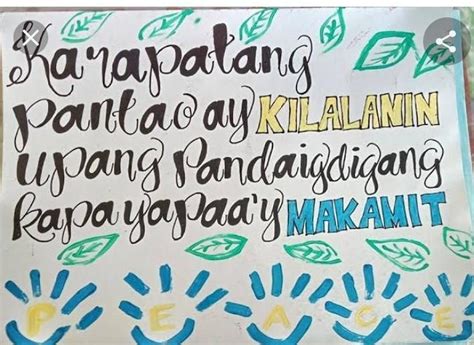 Karapatang
pantao ay KILALANIN
upang Pandaigdigang
kapayapaa'y MAKAMIT
PEACE